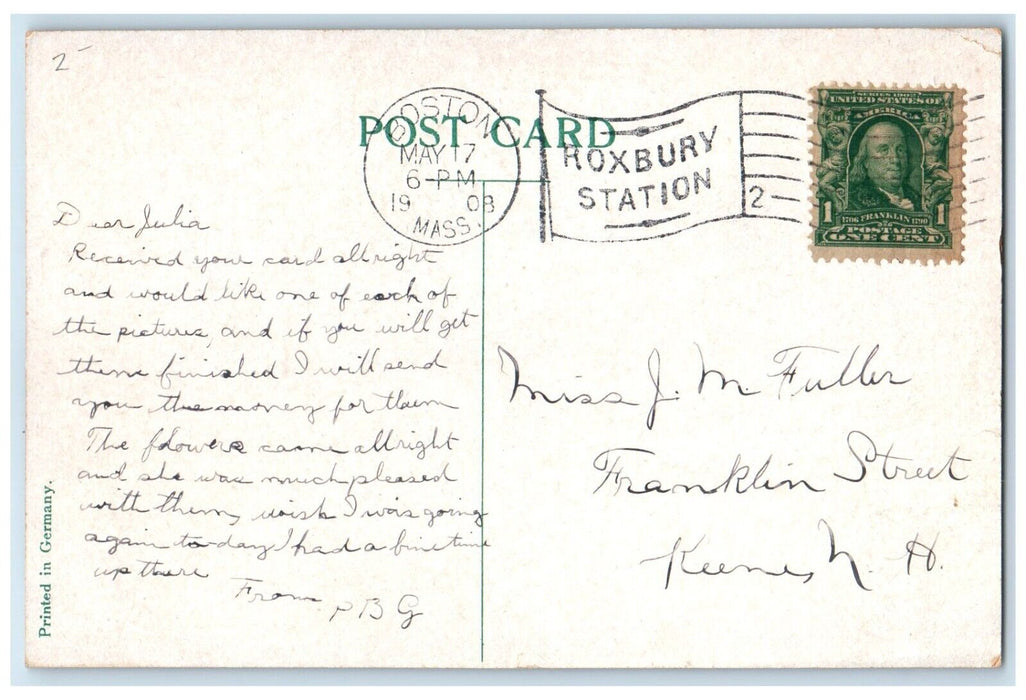 2-
POST CARD
BOSTON
MAY 17
6-PM
1908
MASS.
ROXBURY
STATION
2
SERIES 1902
UNITED STATES OF
AMERICA
1 1706 FRANKLIN 1790 1
POSTAGE
ONE CENT
Dear Julia
Received your card allright
and would like one of each of
the pictures, and if you will get
them finished I will send
you the money for them
The flowers came allright
and she was much pleased
with them, wish I was going
again to-day I had a fine time
up there
From P B G
Miss J. M Fuller
Franklin Street
Keene, N. H.
Printed in Germany.